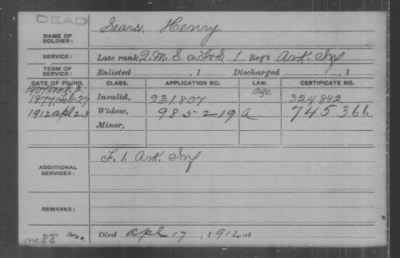 DEAD
NAME OF SOLDIER: Sears, Henry
SERVICE: Late rank Q.M.S. Co. F&S, 1 Reg't Ark Inf
TERM OF SERVICE: Enlisted , 1 Discharged , 1
DATE OF FILING. CLASS. APPLICATION NO. LAW. CERTIFICATE NO.
Age
1877 Invalid, 221.807 324882
1912 Apl 23 Widow, 985219 A 745366
Minor,
ADDITIONAL SERVICES: F. 1. Ark. Inf
REMARKS:
Died Apl 17, 1912 at